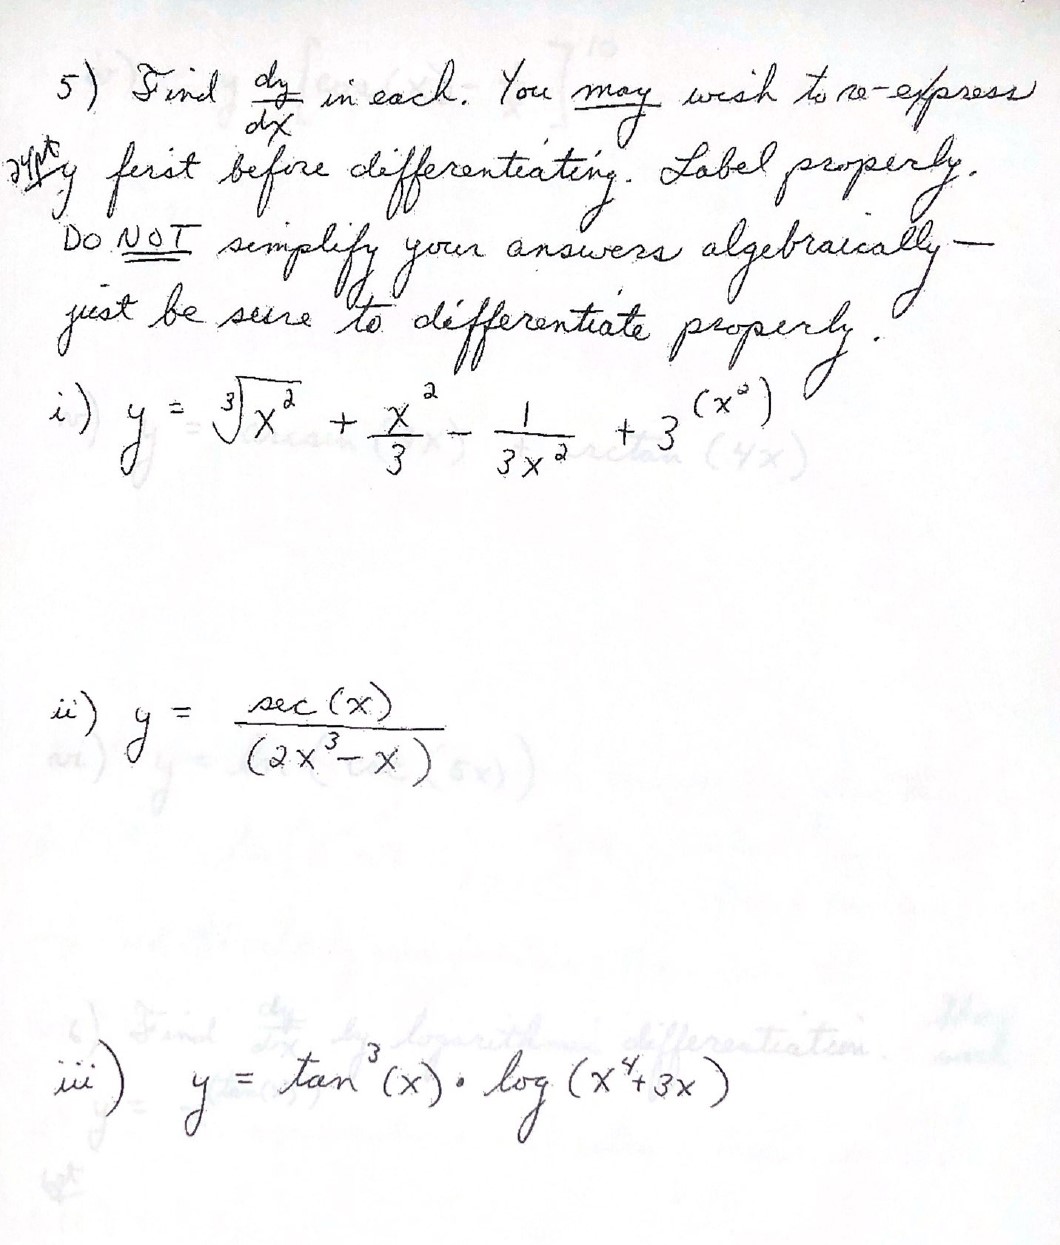 5) Find dy/dx in each. You may wish to re-express
24pt y first before differentiating. Label properly.
Do NOT simplify your answers algebraically —
just be sure to differentiate properly.
i) y = ∛x² + x²/3 - 1/3x² + 3^(x²)
ii) y = sec(x)/(2x³-x)
iii) y = tan³(x) · log(x⁴+3x)